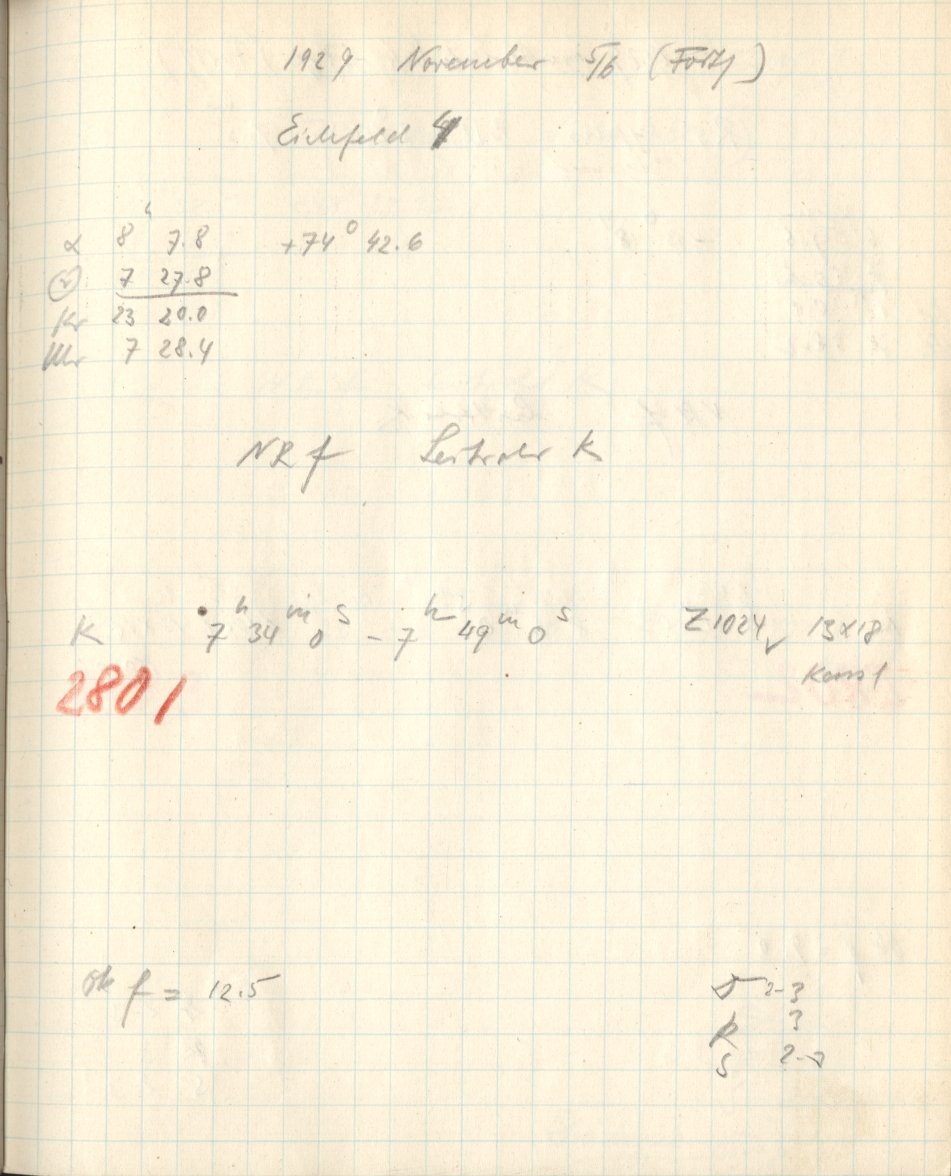 1929 November 5/6 (Forts)
Eichfeld 4
α 8h 7.8 +74° 42.6
7 27.8
23 20.0
Uhr 7 28.4
NR f K
K 7h 34m 0s – 7h 49m 0s Z 1024 ✓ 13x18
2801 Kass 1
f = 12.5
2-3
R 3
S 2-3